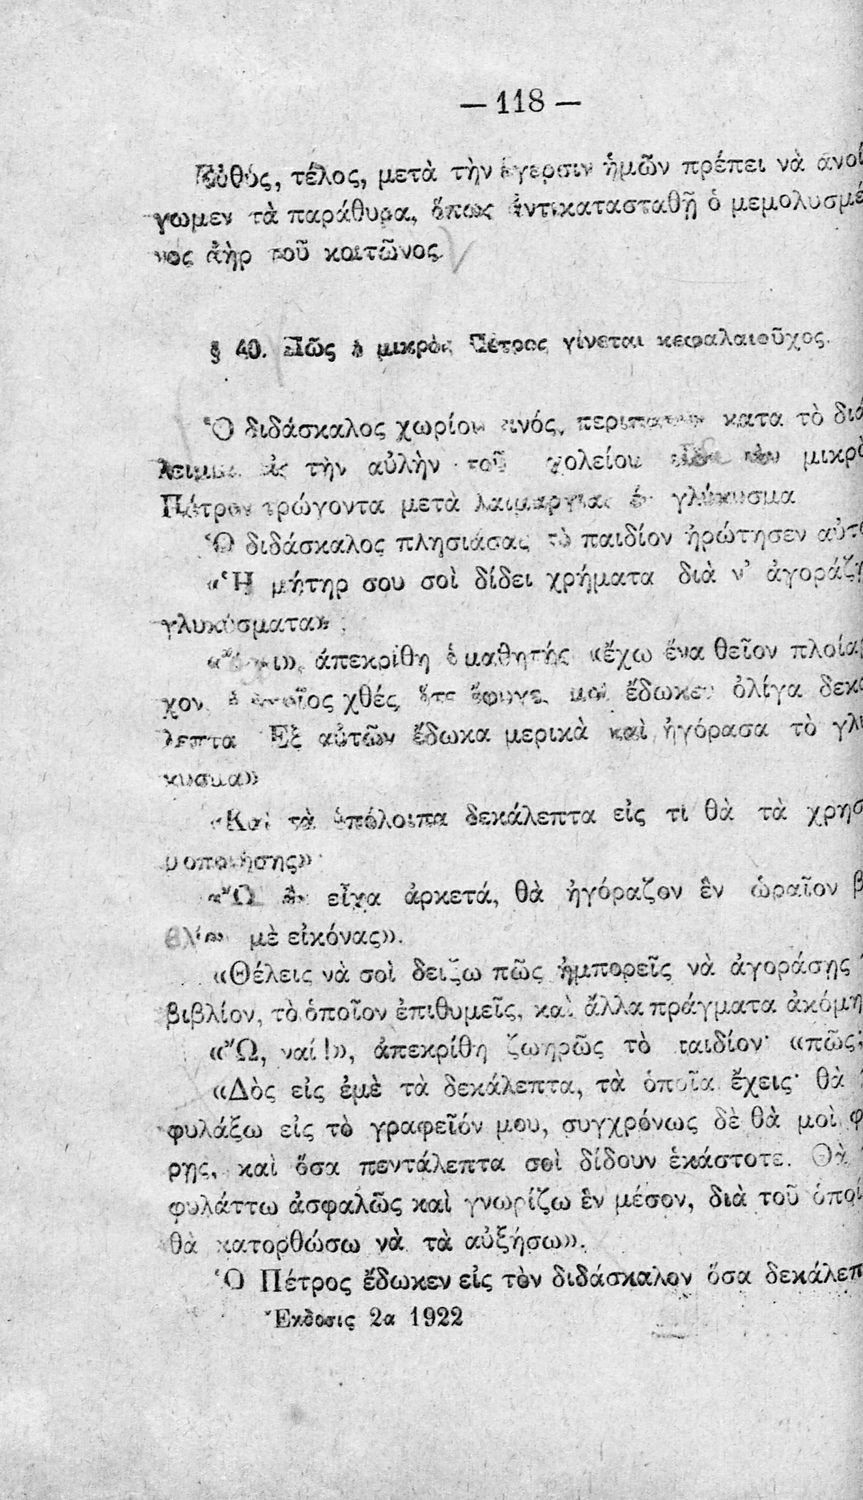 — 118 —
Εὐθύς, τέλος, μετὰ τὴν ἔγερσιν ἡμῶν πρέπει νὰ ἀνοί
γωμεν τὰ παράθυρα, ὅπως ἀντικατασταθῇ ὁ μεμολυσμέ
νος ἀὴρ τοῦ κοιτῶνος.
§ 40. Πῶς ὁ μικρὸς Πέτρος γίνεται κεφαλαιοῦχος.
Ὁ διδάσκαλος χωρίου τινός, περιπατῶν κατα τὸ διά
λειμμα εἰς τὴν αὐλὴν τοῦ σχολείου εἶδε τὸν μικρὸ
Πέτρον τρώγοντα μετὰ λαιμαργίας ἓν γλύκυσμα
Ὁ διδάσκαλος πλησιάσας τὸ παιδίον ἠρώτησεν αὐτό
«Ἡ μήτηρ σου σοὶ δίδει χρήματα διὰ ν' ἀγοράζῃ
γλυκύσματα»
«Ὄχι», ἀπεκρίθη ὁ μαθητής «ἔχω ἕνα θεῖον πλοία
χον, ὁ ὁποῖος χθές, ὅτε ἔφυγε, μοὶ ἔδωκεν ὀλίγα δεκά
λεπτα Ἐξ αὐτῶν ἔδωκα μερικὰ καὶ ἠγόρασα τὸ γλύ
κυσμα»
«Καὶ τὰ ὑπόλοιπα δεκάλεπτα εἰς τι θὰ τὰ χρησ
μοποιήσης»
«Ὢ ἂν εἶχα ἀρκετά, θὰ ἠγόραζον ἓν ὡραῖον β
βλίον μὲ εἰκόνας».
«Θέλεις νὰ σοὶ δείξω πῶς ἠμπορεῖς νὰ ἀγοράσῃς
βιβλίον, τὸ ὁποῖον ἐπιθυμεῖς, καὶ ἄλλα πράγματα ἀκόμη
«Ὤ, ναί!», ἀπεκρίθη ζωηρῶς τὸ παιδίον· «πῶς;
«Δὸς εἰς ἐμὲ τὰ δεκάλεπτα, τὰ ὁποῖα ἔχεις· θὰ
φυλάξω εἰς τὸ γραφεῖόν μου, συγχρόνως δὲ θὰ μοὶ φ
ρῃς, καὶ ὅσα πεντάλεπτα σοὶ δίδουν ἑκάστοτε. Θὰ
φυλάττω ἀσφαλῶς καὶ γνωρίζω ἓν μέσον, διὰ τοῦ ὁποί
θὰ κατορθώσω νὰ τὰ αὐξήσω».
Ὁ Πέτρος ἔδωκεν εἰς τὸν διδάσκαλον ὅσα δεκάλεπ
Ἔκδοσις 2α 1922